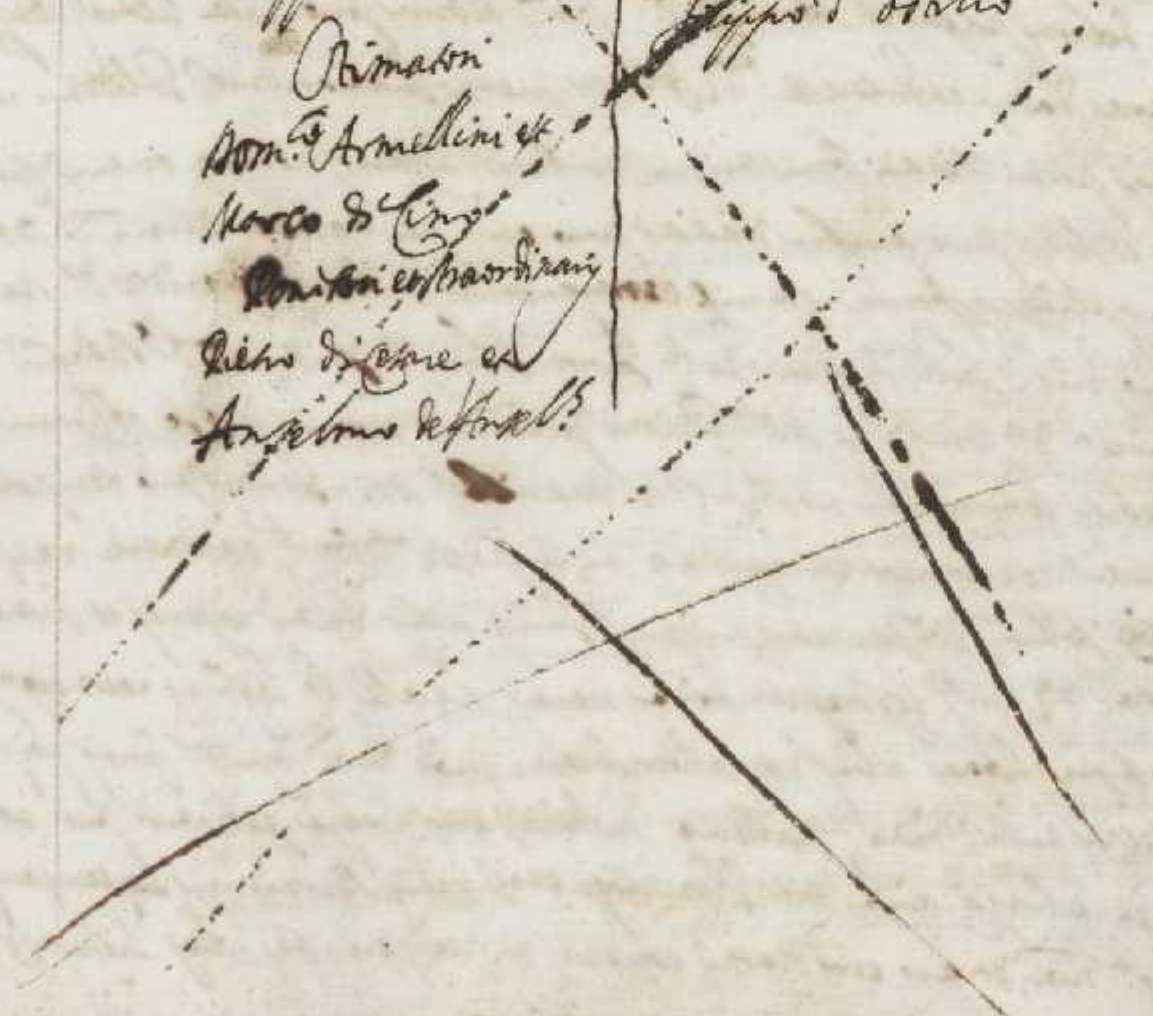 Stimatori
Dom.co Armellini et
Marco di Cino
Ponitori extraordinarij
Pietro di Cesare et
Anselmo de Angel.s